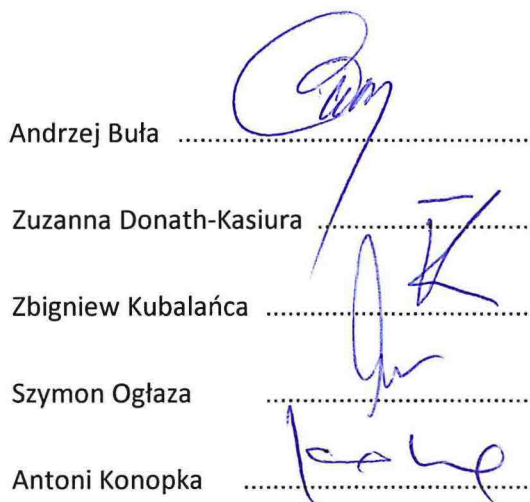 Andrzej Buła ..........................................................
Zuzanna Donath-Kasiura ..................................
Zbigniew Kubalańca ...........................................
Szymon Ogłaza ...........................................
Antoni Konopka ..............................................